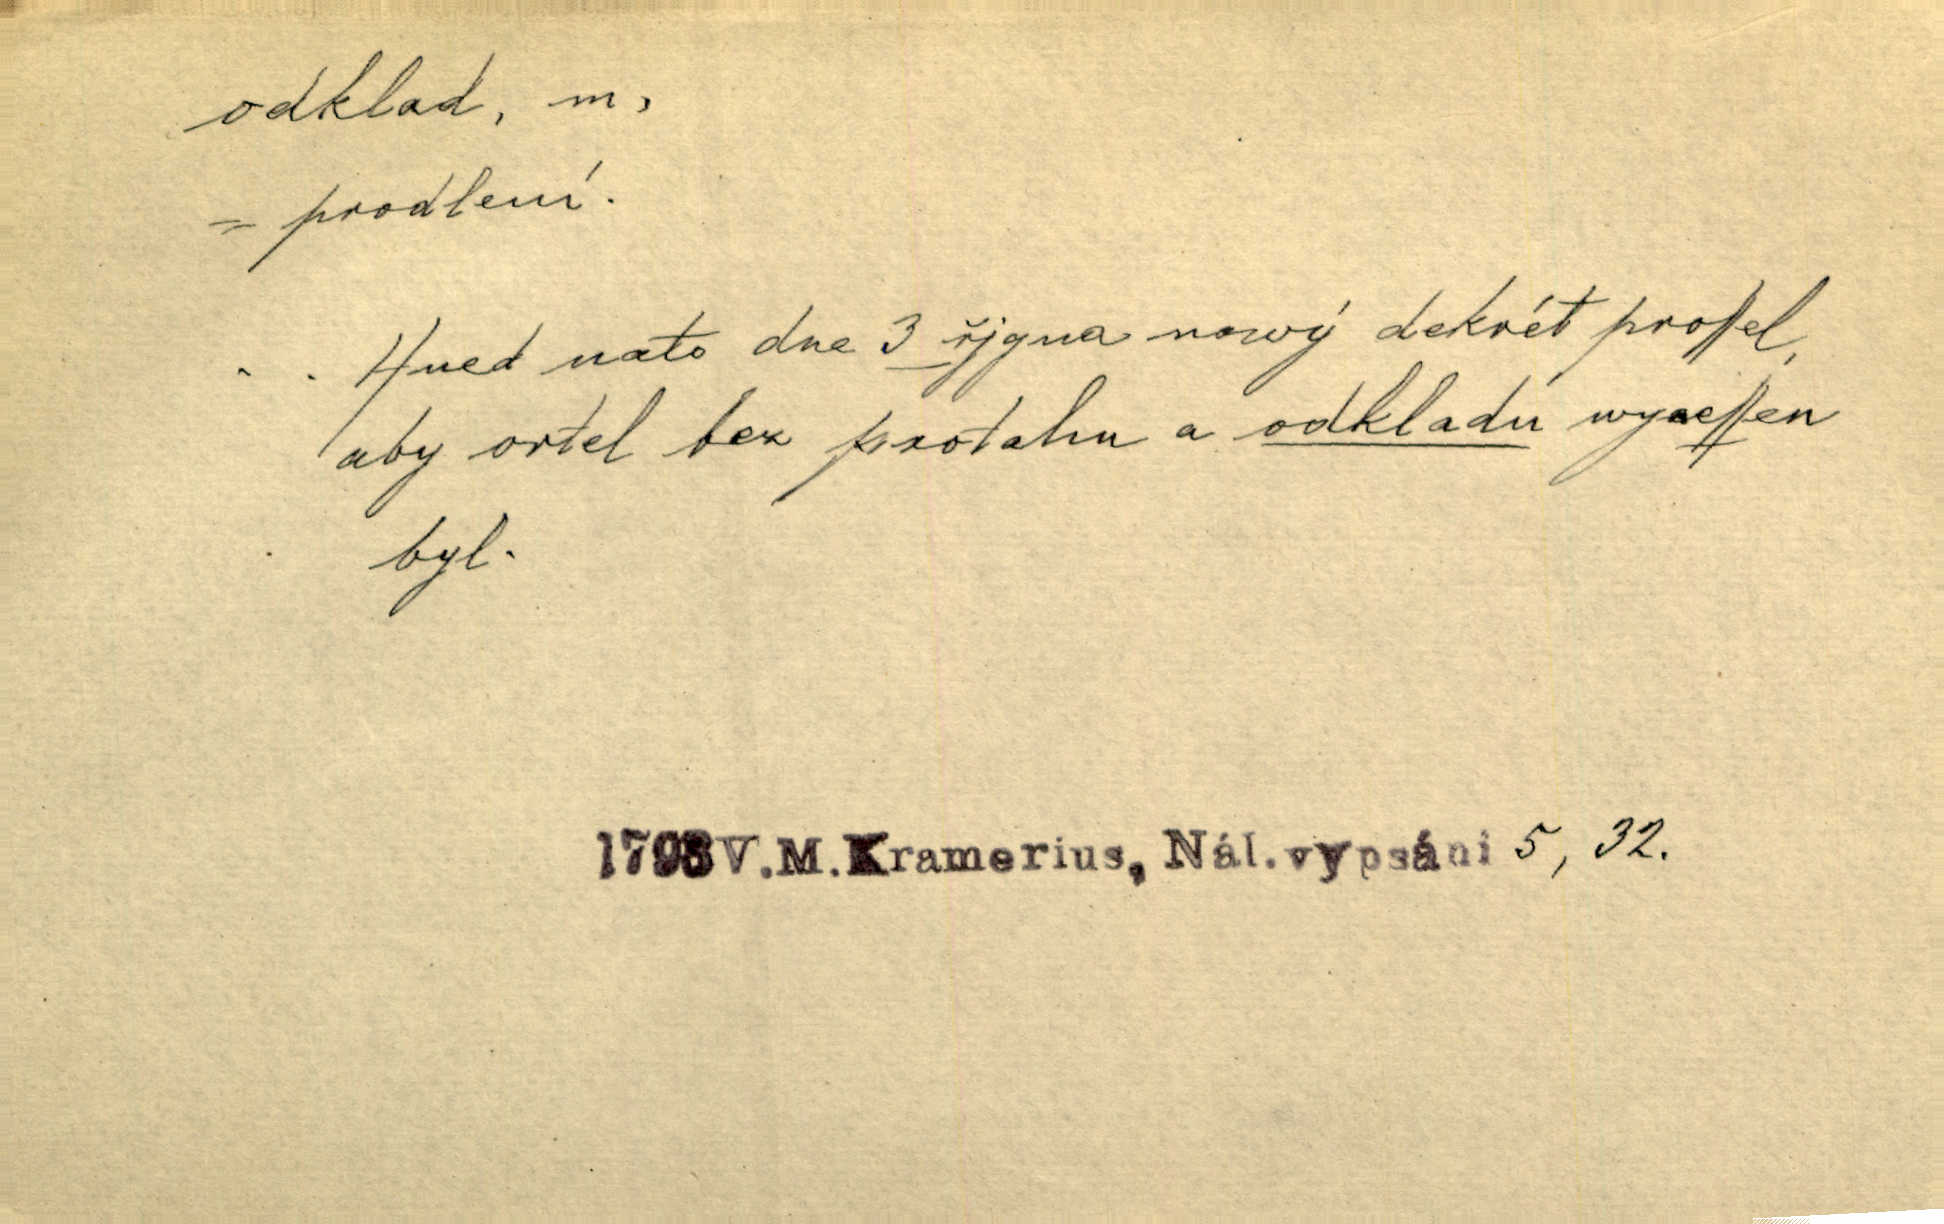 odklad, m,
= prodlení.
. . Hned nato dne 3 řjgna nowý dekrét proſſel,
aby ortel bez protahu a odkladu wyneſſen
byl.
1793 V.M.Kramerius, Nál.vypsání 5, 32.